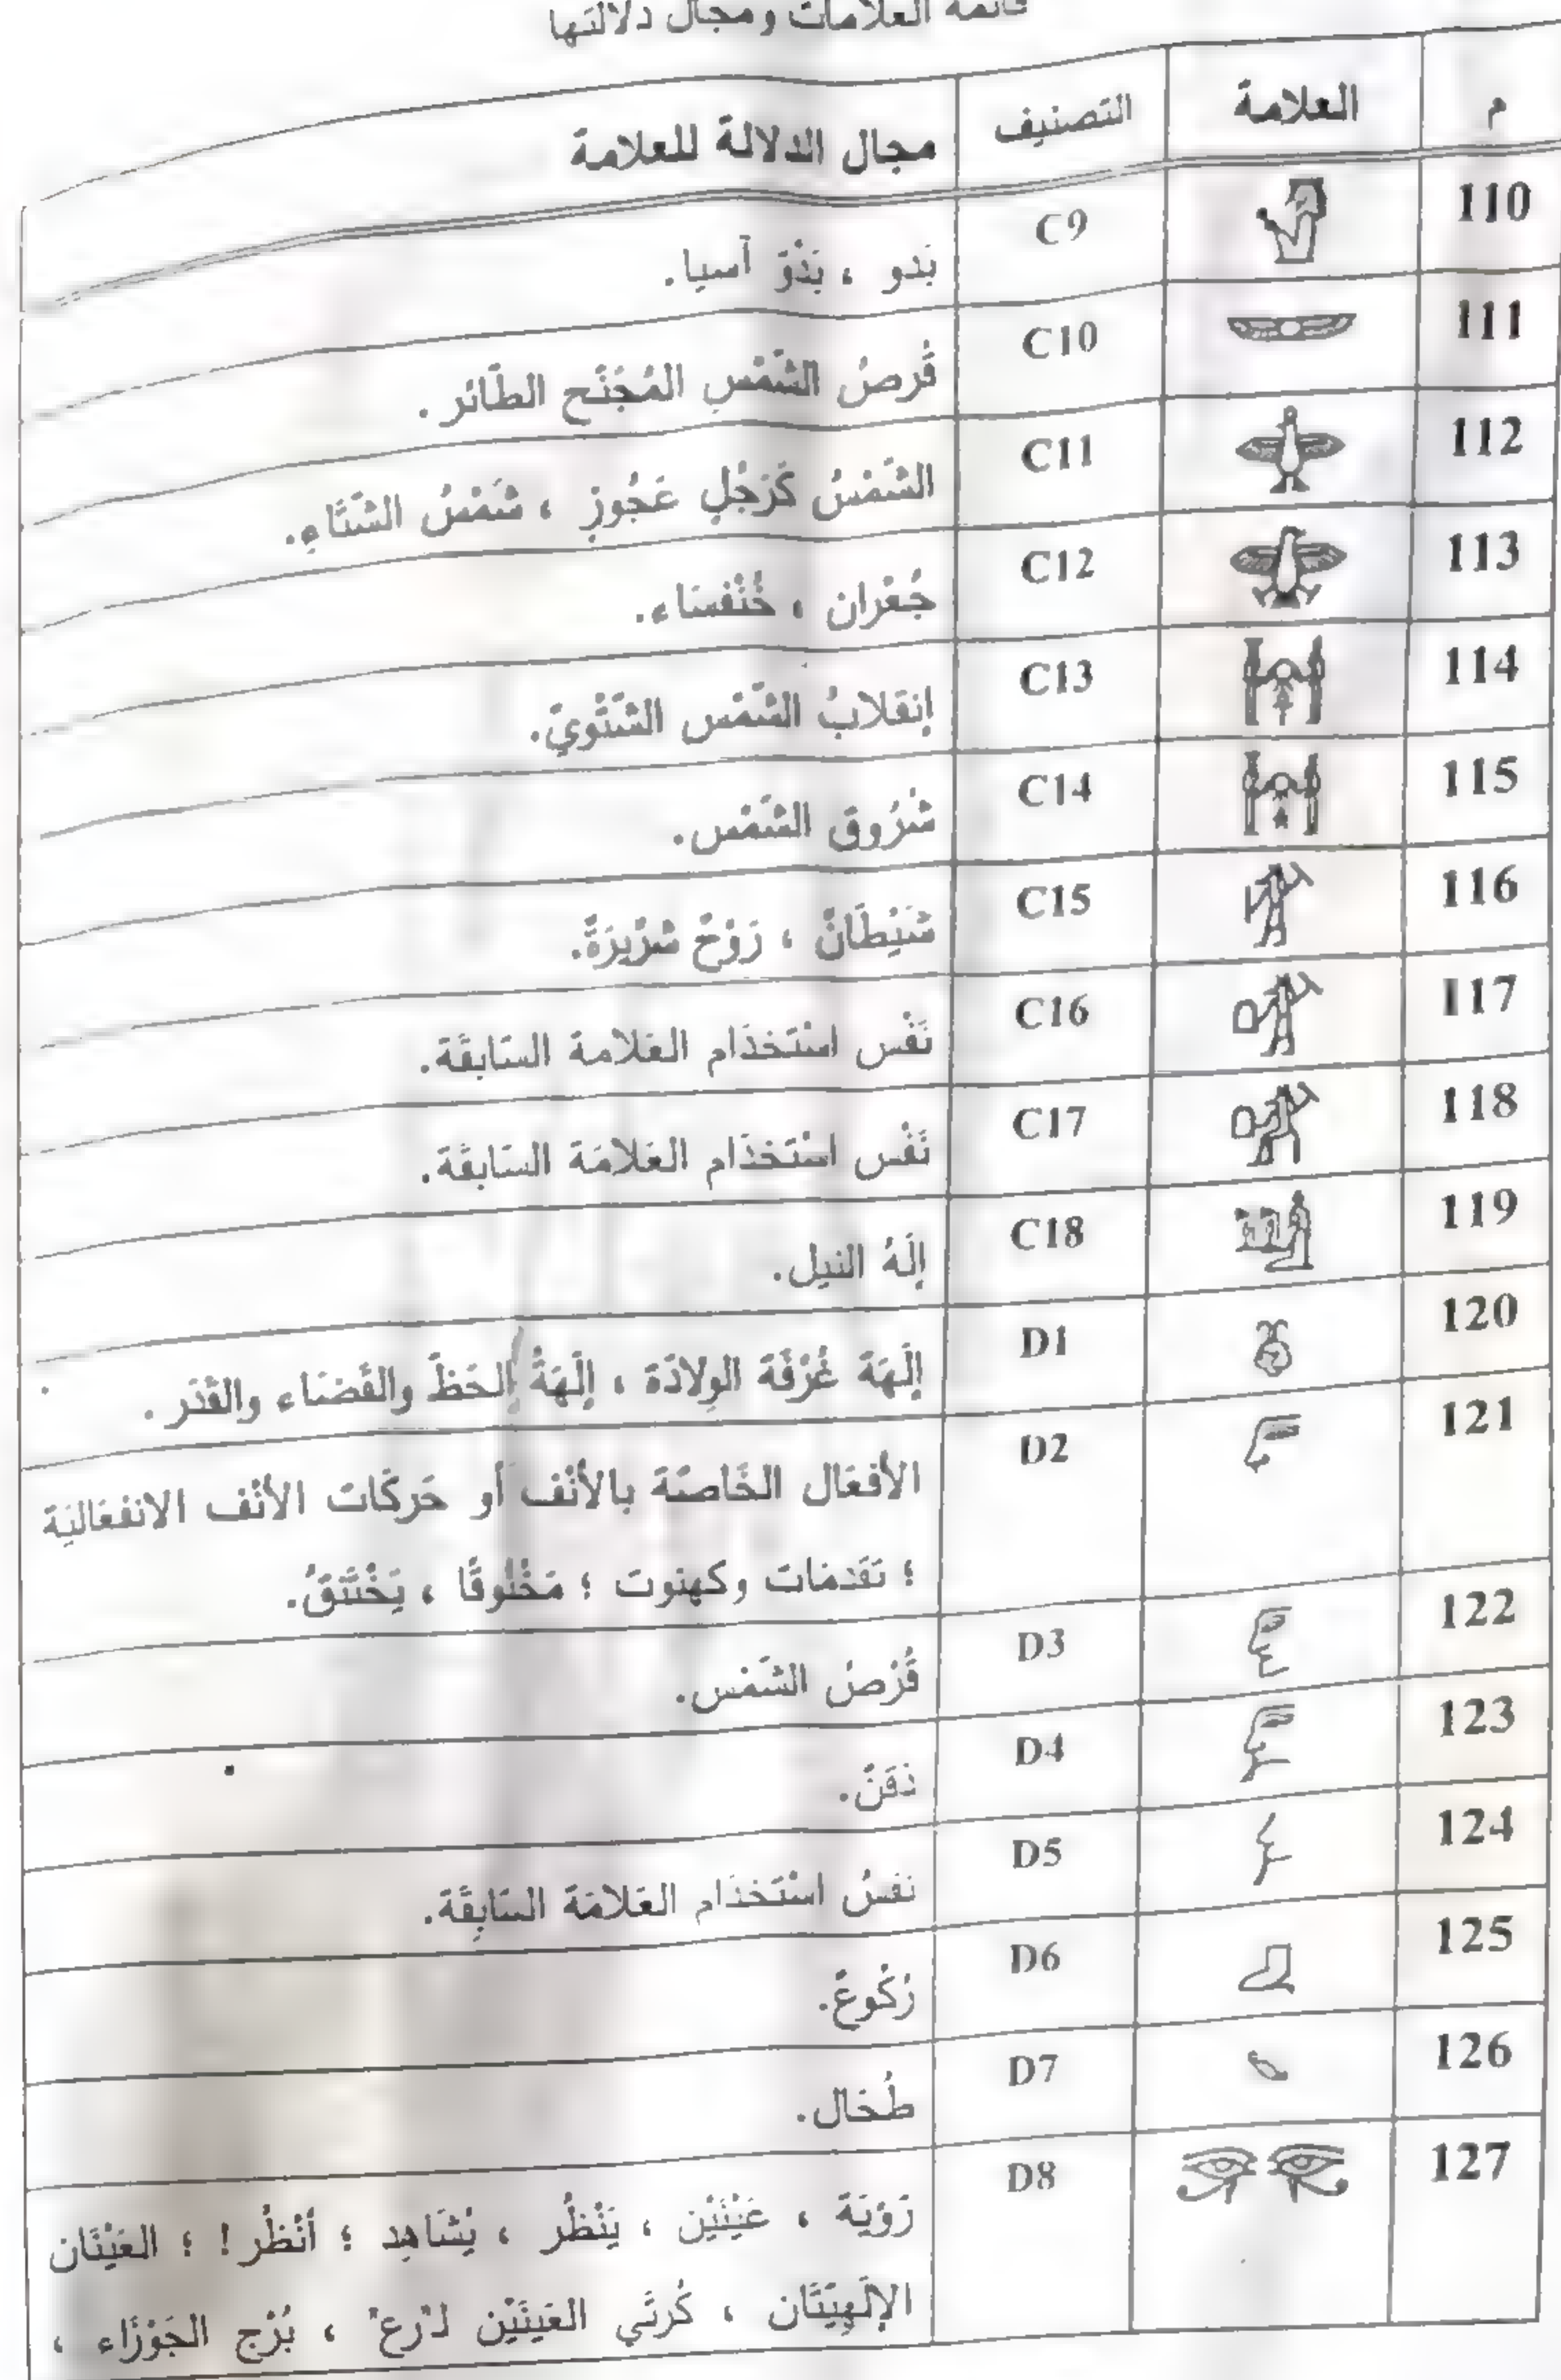 قائمة العلامات ومجال دلالتها
م العلامة التصنيف مجال الدلالة للعلامة
110 C9 بَدو ، بَدْوّ آسيا.
111 C10 قُرصُ الشَّمْسِ المُجَنَّح الطَّائر.
112 C11 الشَّمْسُ كَرَجُلٍ عَجُوزٍ ، شَمْسُ الشِّتَاءِ.
113 C12 جُعْران ، خُنْفسَاء.
114 C13 إنقلابُ الشَّمْس الشَّتْويّ.
115 C14 شُرُوق الشَّمْس.
116 C15 شَيْطَانٌ ، رَوْحٌ شرِّيرَةٌ.
117 C16 نَفْس اسْتَخدَام العَلامة السَّابقَة.
118 C17 نَفْس اسْتَخدَام العَلامَة السَّابقَة.
119 C18 إلَهُ النيل.
120 D1 إلَهَة غُرْفَة الوِلادَة ، إلَهَةُ الحَظّ والقَضَاء والقَدَر.
121 D2 الأفعَال الخَاصَّة بالأنْف أو حَركَات الأنْف الانفعَاليَة
؛ تَقَدمَات وكهنوت ؛ مَخْنُوقًا ، يَخْتَنقُ.
122 D3 قُرْصُ الشَّمْس.
123 D4 ذَقَنٌ.
124 D5 نَفسُ اسْتَخدَام العَلامَة السَّابِقَة.
125 D6 رُكُوعٌ.
126 D7 طُحَال.
127 D8 رَؤيَة ، عَيْنَيْن ، يَنْظُر ، يُشَاهِد ؛ أنْظُر! ؛ العَيْنَان
الإلَهِيَّتَان ، كُرتَي العَينَيْن لـ"رع" ، بُرْج الجَوْزَاء ،